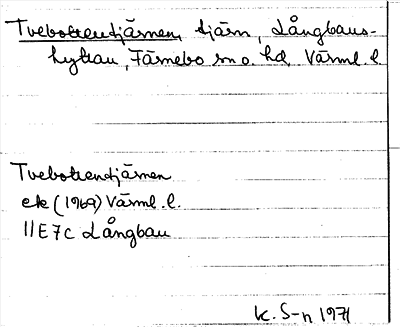 Tvebottentjärnen, tjärn, Långbans-
hyttan, Färnebo sn o. hd, Värml. l.
Tvebottentjärnen
ek (1969) Värml. l.
11E7c Långban
K. S-n 1971